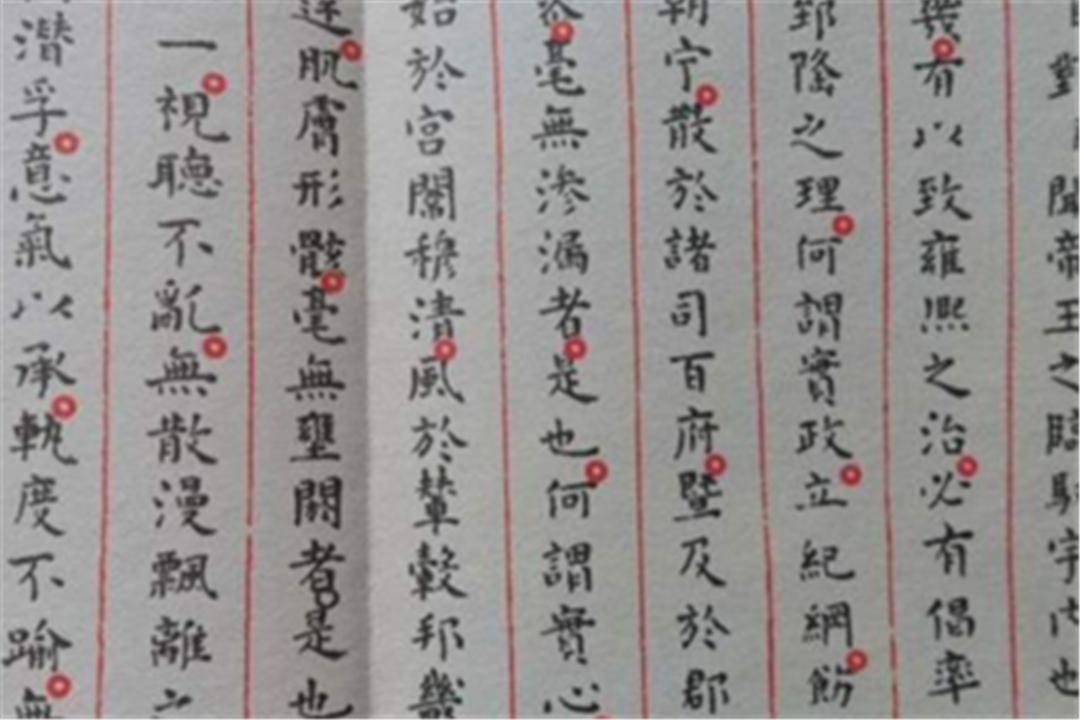 對 聞帝王之臨馭宇内也
幾有以致雍熙之治必有倡率
郅隆之理何謂實政立紀綱飭
朝宁散於諸司百府暨及於郡
容毫無滲漏者是也何謂實心
始於宮闈穆清風於輦轂邦畿
達肌膚形骸毫無壅閼者是也
一視聽不亂無散漫飄離之
潛孚意氣以承軌度不踰無